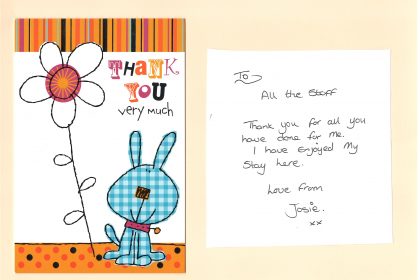 THANK
YOU
very much
To
All the Staff
Thank you for all you
have done for me.
I have Enjoyed My
Stay here.
Love from
Josie.
xx